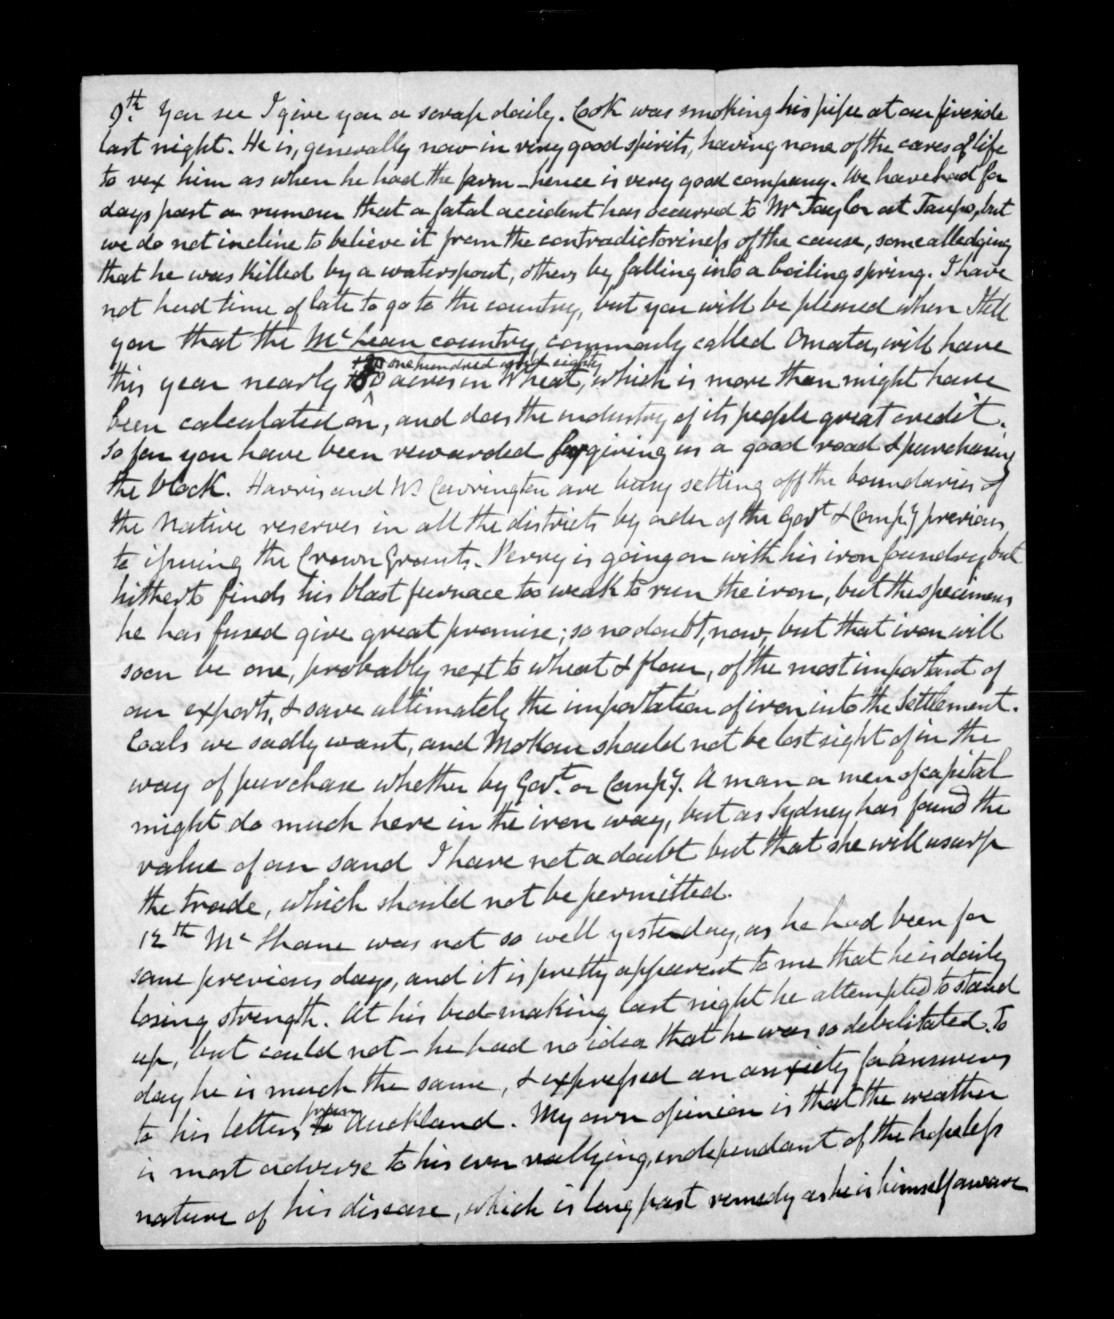 9th. You see I give you a scrap daily. Cook was smoking his pipe at our fireside
last night. He is, generally now in very good spirits, having none of the cares of life
to vex him as when he had the farm - hence is very good company. We have had for
days past a rumour that a fatal accident has occurred to Mr Taylor at Taupo, but
we do not incline to believe it from the contradictoriness of the cause, some alledging
that he was killed by a waterspout, others by falling into a boiling spring. I have
not had time of late to go to the country, but you will be pleased when I tell
you that the McLean country, commonly called Omata, will have
one hundred and eighty
this year nearly acres in Wheat, which is more than might have
been calculated on, and does the industry of its people great credit.
So far you have been rewarded for giving us a good road & purchasing
the block. Harris and W Carrington are busy setting off the boundaries of
the Native reserves in all the districts by order of the Govt & Compy previous
to issuing the Crown Grants. Perry is going on with his iron foundry but
hitherto finds his blast furnace too weak to run the iron, but the specimens
he has fused give great promise; so no doubt, now, but that iron will
soon be one, probably next to wheat & flour, of the most important of
our exports, & save ultimately the importation of iron into the Settlement.
Coals we sadly want, and Mokau should not be lost sight of in the
way of purchase whether by Govt. or Compy. A man or men of capital
might do much here in the iron way, but as Sydney has found the
value of our sand I have not a doubt but that she will usurp
the trade, which should not be permitted.
12th McShane was not so well yesterday, as he had been for
some previous days, and it is pretty apparent to me that he is daily
losing strength. At his bed-making last night he attempted to stand
up, but could not - he had no idea that he was so debilitated. To
day he is much the same, & expressed an anxiety for answers
from
to his letters to Auckland. My own opinion is that the weather
is most adverse to his ever rallying, independant of the hopeless
nature of his disease, which is long past remedy as he is himself aware